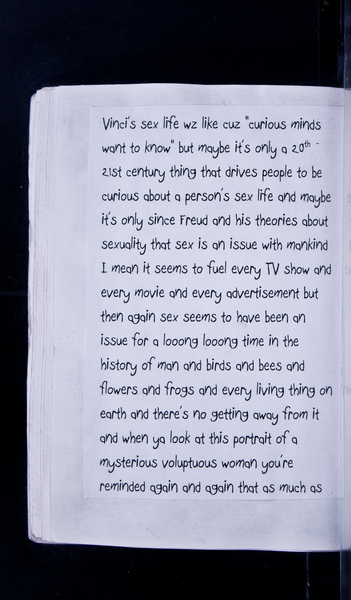 Vinci's sex life wz like cuz "curious minds
want to know" but maybe it's only a 20th -
21st century thing that drives people to be
curious about a person's sex life and maybe
it's only since Freud and his theories about
sexuality that sex is an issue with mankind
I mean it seems to fuel every TV show and
every movie and every advertisement but
then again sex seems to have been an
issue for a looong looong time in the
history of man and birds and bees and
flowers and frogs and every living thing on
earth and there's no getting away from it
and when ya look at this portrait of a
mysterious voluptuous woman you're
reminded again and again that as much as